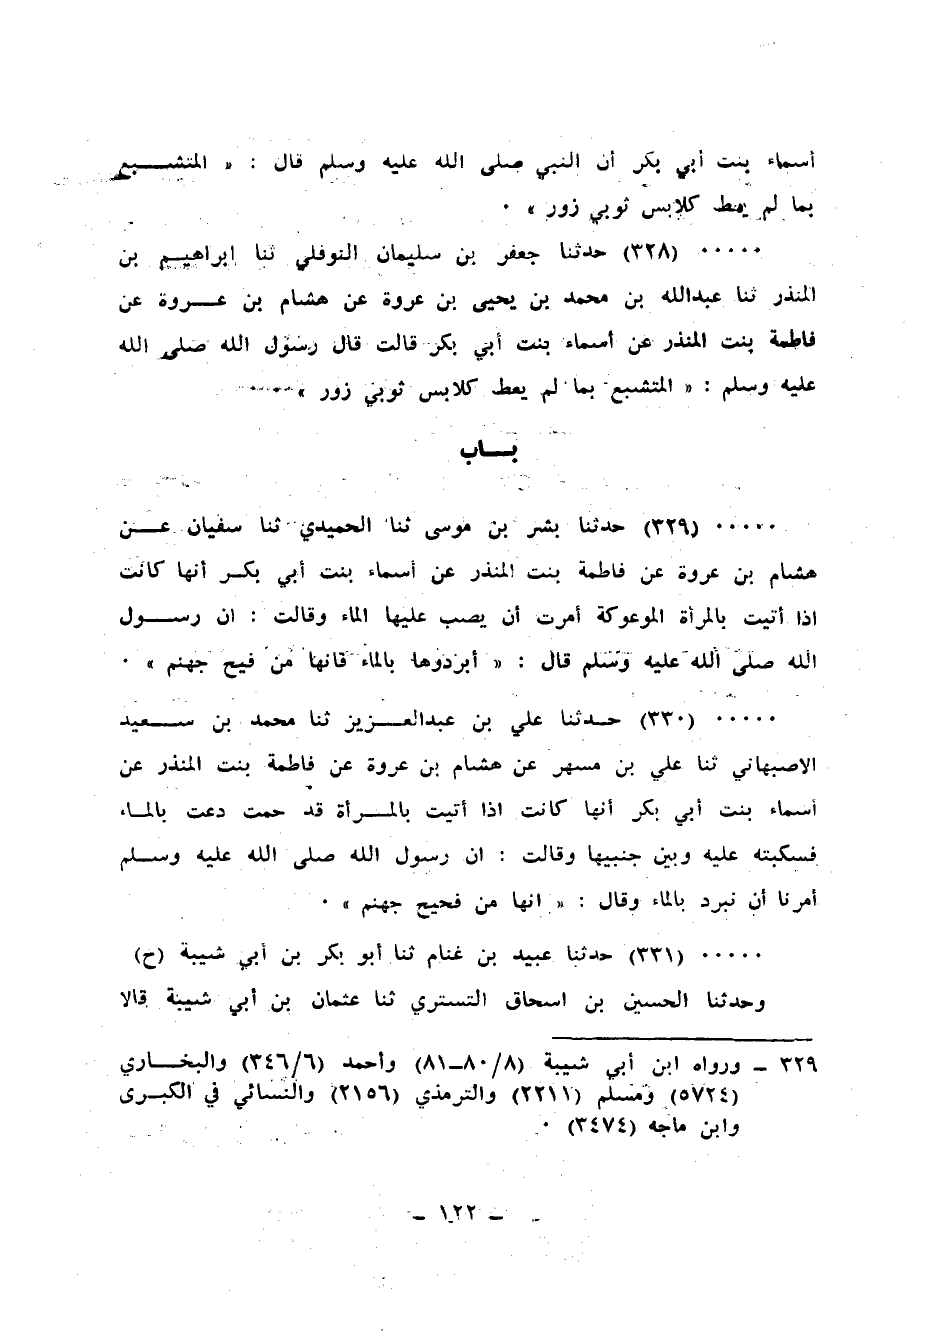 أسماء بنت أبي بكر أن النبي صلى الله عليه وسلم قال : « المتشبع
بما لم يعط كلابس ثوبي زور » ٠
٠٠٠٠٠ (٣٢٨) حدثنا جعفر بن سليمان النوفلي ثنا ابراهيم بن
المنذر ثنا عبدالله بن محمد بن يحيى بن عروة عن هشام بن عروة عن
فاطمة بنت المنذر عن أسماء بنت أبي بكر قالت قال رسول الله صلى الله
عليه وسلم : « المتشبع بما لم يعط كلابس ثوبي زور »
باب
٠٠٠٠٠ (٣٢٩) حدثنا بشر بن موسى ثنا الحميدي ثنا سفيان عن
هشام بن عروة عن فاطمة بنت المنذر عن أسماء بنت أبي بكر أنها كانت
اذا أتيت بالمرأة الموعوكة أمرت أن يصب عليها الماء وقالت : ان رسول
الله صلى الله عليه وسلم قال : « أبردوها بالماء فانها من فيح جهنم » ٠
٠٠٠٠٠ (٣٣٠) حدثنا علي بن عبدالعزيز ثنا محمد بن سعيد
الاصبهاني ثنا علي بن مسهر عن هشام بن عروة عن فاطمة بنت المنذر عن
أسماء بنت أبي بكر أنها كانت اذا أتيت بالمرأة قد حمت دعت بالماء
فسكبته عليه وبين جنبيها وقالت : ان رسول الله صلى الله عليه وسلم
أمرنا أن نبرد بالماء وقال : « انها من فحيح جهنم » ٠
٠٠٠٠٠ (٣٣١) حدثنا عبيد بن غنام ثنا أبو بكر بن أبي شيبة (ح)
وحدثنا الحسين بن اسحاق التستري ثنا عثمان بن أبي شيبة قالا
٣٢٩ – ورواه ابن أبي شيبة (٨/ ٨٠–٨١) وأحمد (٣٤٦/٦) والبخاري
(٥٧٢٤) ومسلم (٢٢١١) والترمذي (٢١٥٦) والنسائي في الكبرى
وابن ماجه (٣٤٧٤) ٠
– ١٢٢ –